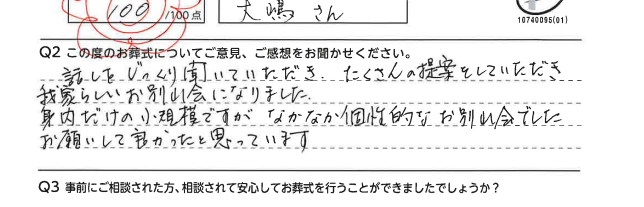 100 /100点 大嶋 さん
10740095(01)
Q2 この度のお葬式についてご意見、ご感想をお聞かせください。
話しをじっくり聞いていただき、たくさんの提案をしていただき
我家らしいお別れ会になりました。
身内だけの小規模ですが なかなか個性的なお別れ会でした
お願いして良かったと思っています
Q3 事前にご相談された方、相談されて安心してお葬式を行うことができましたでしょうか?